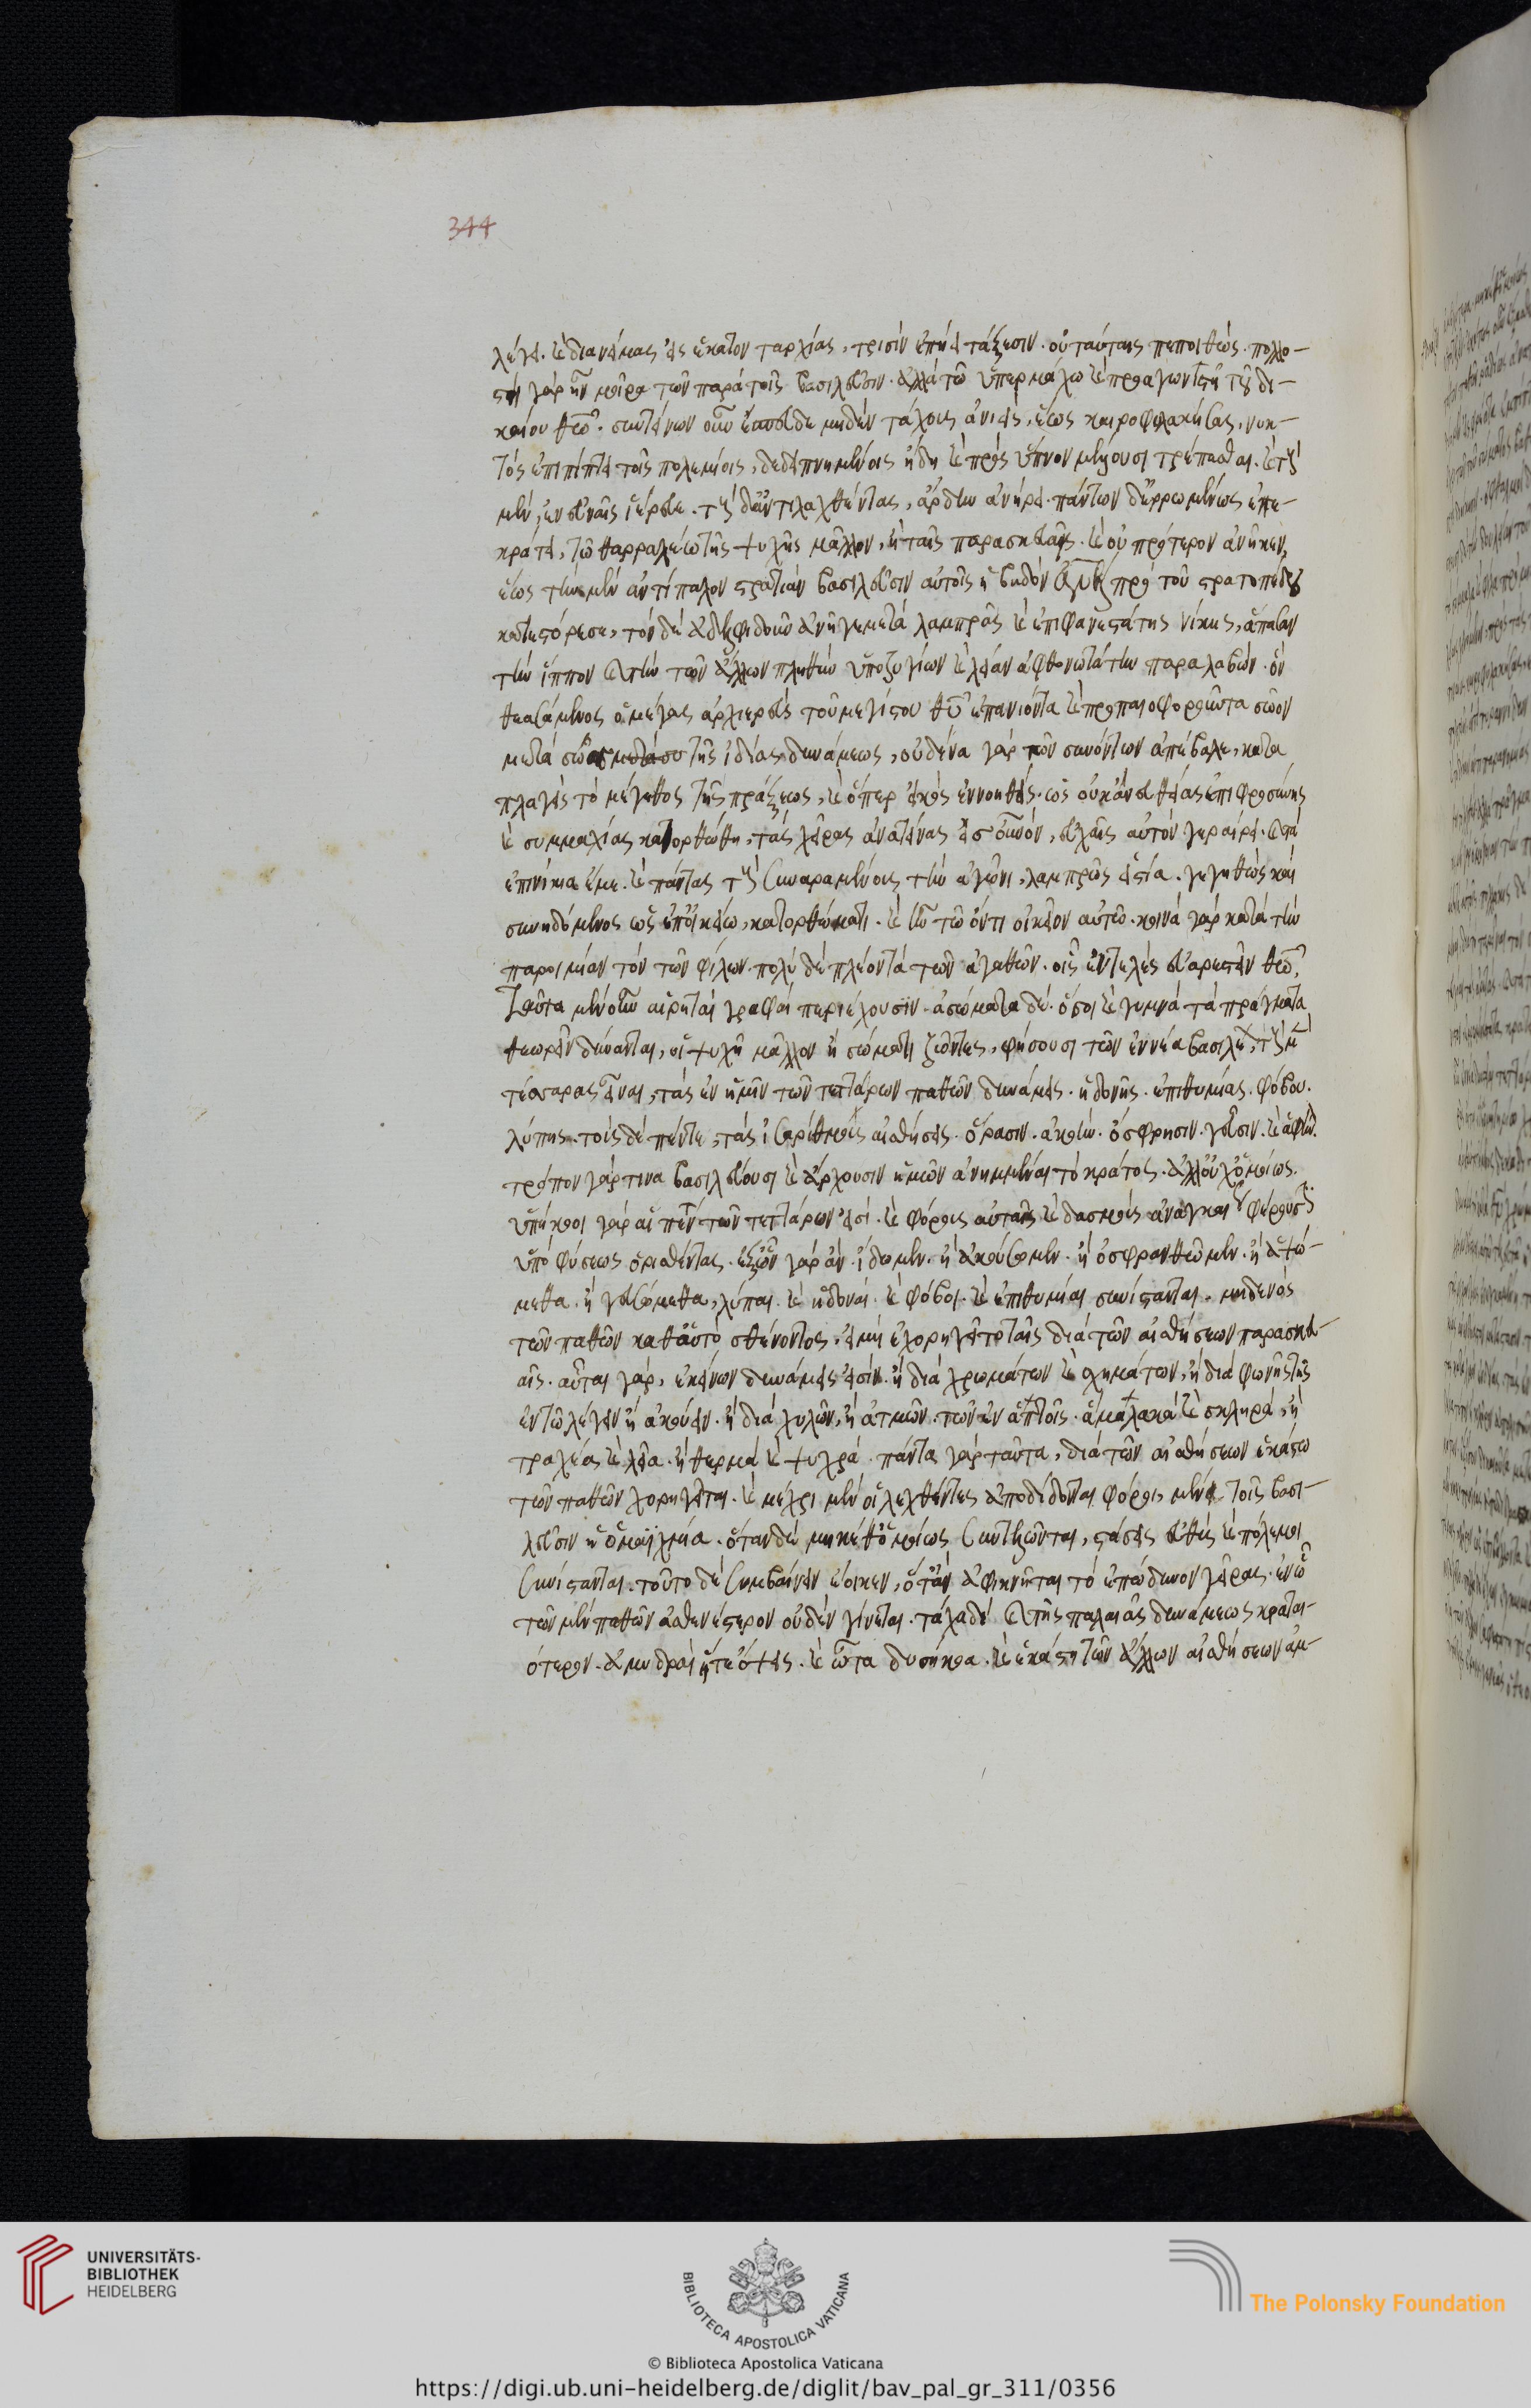 344
λέγει. καὶ διανείμας εἰς ἑκατον ταρχίας, τρισὶν ἐπήει τάξεσιν. οὐ ταύταις πεποιθώς. πολλο-
στὴ γὰρ ἦν μοῖρα τῶν παρὰ τοῖς βασιλεῦσιν. ἀλλὰ τῶ ὑπερμάχω καὶ προαγωνιστῆ τοῦ δι-
καίου θεῶ. συντείνων οὖν ἔσπευδε μηδὲν τάχους ἀνιεὶς, ἕως καιροφυλακήσας, νυκ-
τὸς ἐπιπίπτει τοῖς πολεμίοις, δεδειπνημένοις ἤδη καὶ πρὸς ὕπνον μέλλουσι τρέπεσθαι. καὶ τοὺς
μὲν, ἐν εὐναῖς ἱέρευε. τοὺς δ' ἀντιταχθέντας, ἄρδην ἀνήρει. πάντων δ' ἐρρωμένως ἐπε-
κράτει, τῶ θαρραλέω τῆς ψυχῆς μᾶλλον, ἢ ταῖς παρασκευαῖς. καὶ οὐ πρότερον ἀνῆκεν,
ἕως τὴν μὲν ἀντίπαλον στρατιὰν βασιλεῦσιν αὐτοῖς ἡβηδὸν πρὸ τοῦ στρατοπέδου
κατεστόρεσε, τὸν δὲ ἀδελφιδοῦν ἀνῆγε μετὰ λαμπρᾶς καὶ ἐπιφανεστάτης νίκης, ἅπασαν
τὴν ἵππον καὶ τὴν τῶν ἄλλων πληθὺν ὑποζυγίων καὶ λείαν ἀφθονωτάτην παραλαβών. ὃν
θεασάμενος ὁ μέγας ἀρχιερεὺς τοῦ μεγίστου θυ ἐπανιόντα καὶ τροπαιοφοροῦντα σῶον
μετὰ σώας τῆς ἰδίας δυνάμεως, οὐδένα γὰρ τῶν συνόντων ἀπέβαλε, κατα
πλαγεὶς τὸ μέγεθος τῆς πράξεως, καὶ ὅπερ εἰκὸς ἐννοηθεὶς. ὡς οὐκ ἄνευ θείας ἐπιφροσύνης
καὶ συμμαχίας κατορθώθη, τὰς χεῖρας ἀνατείνας εἰς οὐνὸν, εὐχαῖς αὐτὸν γεραίρει. καὶ
ἐπινίκια ἔθυε. καὶ πάντας τοὺς συναραμένους τὴν ἀγῶνι, λαμπρῶς εἱστία. γεγηθὼς καὶ
συνηδόμενος ὡς ἐπ' οἰκείω, κατορθώματι. καὶ ἦν τῶ ὄντι οἰκεῖον αὐτῶ. κοινὰ γὰρ κατὰ τὴν
παροιμίαν τὸν τῶν φίλων. πολὺ δὲ πλέον τὰ τῶν ἀγαθῶν. οἷς ἓν τέλος εὐαρεστεῖν θεῶ,
Ταῦτα μὲν οὖν αἱ ρηταὶ γραφαὶ περιέχουσιν. ἀσώματα δὲ. ὅσοι καὶ γυμνὰ τὰ πράγματα
θεωρεῖν δύνανται, οἱ ψυχῆ μᾶλλον ἢ σώματι ζῶντες, φήσουσι τῶν ἐννέα βασιλέων, τοὺς μὲν
τέσσαρας εἶναι, τὰς ἐν ἡμῖν τῶν τεττάρων παθῶν δυνάμεις. ἡδονῆς. ἐπιθυμίας. φόβου.
λύπης. τοὺς δὲ πέντε, τὰς ἰσαρίθμους αἰσθήσεις. ὅρασιν. ἀκοὴν. ὄσφρησιν. γεῦσιν. καὶ ἀφὴν.
τρόπον γάρ τινα βασιλεύουσι καὶ ἄρχουσιν ἡμῶν ἀνημμέναι τὸ κράτος. ἀλλ' οὐχ ὁμοίως.
ὑπήκοοι γὰρ αἱ πέντε τῶν τεττάρων εἰσί. καὶ φόρους αὐταῖς καὶ δασμοὺς ἀναγκαίους φέρουσιν
ὑπὸ φύσεως ὁρισθέντας. ἐξ ὧν γὰρ ἂν. ἴδωμεν. ἢ ἀκούσωμεν. ἢ ὀσφρανθῶμεν. ἢ ἁψώ-
μεθα. ἢ γευσόμεθα, λύπαι. καὶ ἡδοναὶ. καὶ φόβοι. καὶ ἐπιθυμίαι συνίστανται. μηδενὸς
τῶν παθῶν καθ' ἑαυτὸ σθένοντος. εἰ μὴ ἐχορηγεῖτο ταῖς διὰ τῶν αἰσθήσεων παρασκευ-
αῖς. αὗται γὰρ, ἐκείνων δυνάμεις εἰσίν. ἢ διὰ χρωμάτων καὶ σχημάτων, ἢ διὰ φωνῆς τῆς
ἐν τῶ λέγειν ἢ ἀκούειν. ἢ διὰ χυλῶν, ἢ ἀτμῶν. τῶν ἐν ἁπτοῖς. ἃ μαλακὰ καὶ σκληρὰ, ἢ
τραχέα καὶ λεῖα. ἢ θερμὰ καὶ ψυχρὰ. πάντα γὰρ ταῦτα, διὰ τῶν αἰσθήσεων ἑκάστω
τῶν παθῶν χορηγεῖται. καὶ μέχρι μὲν οἱ λεχθέντες ἀποδίδονται φόροι, μένει τοῖς βασι-
λεῦσιν ἡ ὁμαιχμία. ὅταν δὲ μηκέθ' ὁμοίως συντελῶνται, στάσεις εὐθὺς καὶ πόλεμοι
συνίστανται. τοῦτο δὲ συμβαίνειν ἔοικεν, ὅταν ἀφικνῆται τὸ ἐπώδυνον γῆρας. ἐν ᾧ
τῶν μὲν παθῶν ἀσθενέστερον οὐδὲν γίνεται. τάχα δὲ καὶ τῆς παλαιᾶς δυνάμεως κραται-
ότερον. ἀμυδραὶ ἥ τε ὄψεις. καὶ ὦτα δυσήκοα. καὶ ἑκάστη τῶν ἄλλων αἰσθήσεων ἀμ-
UNIVERSITÄTS-
BIBLIOTHEK
HEIDELBERG
BIBLIOTECA APOSTOLICA VATICANA
The Polonsky Foundation
© Biblioteca Apostolica Vaticana
https://digi.ub.uni-heidelberg.de/diglit/bav_pal_gr_311/0356